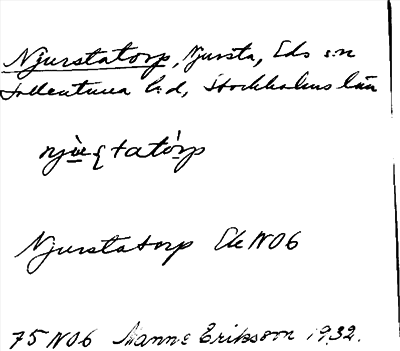 Njurstatorp, Njursta, Eds sn
Sollentuna hd, Stockholms län
Njurstatorp Ek N06
75 N06 Manne Eriksson 1932.